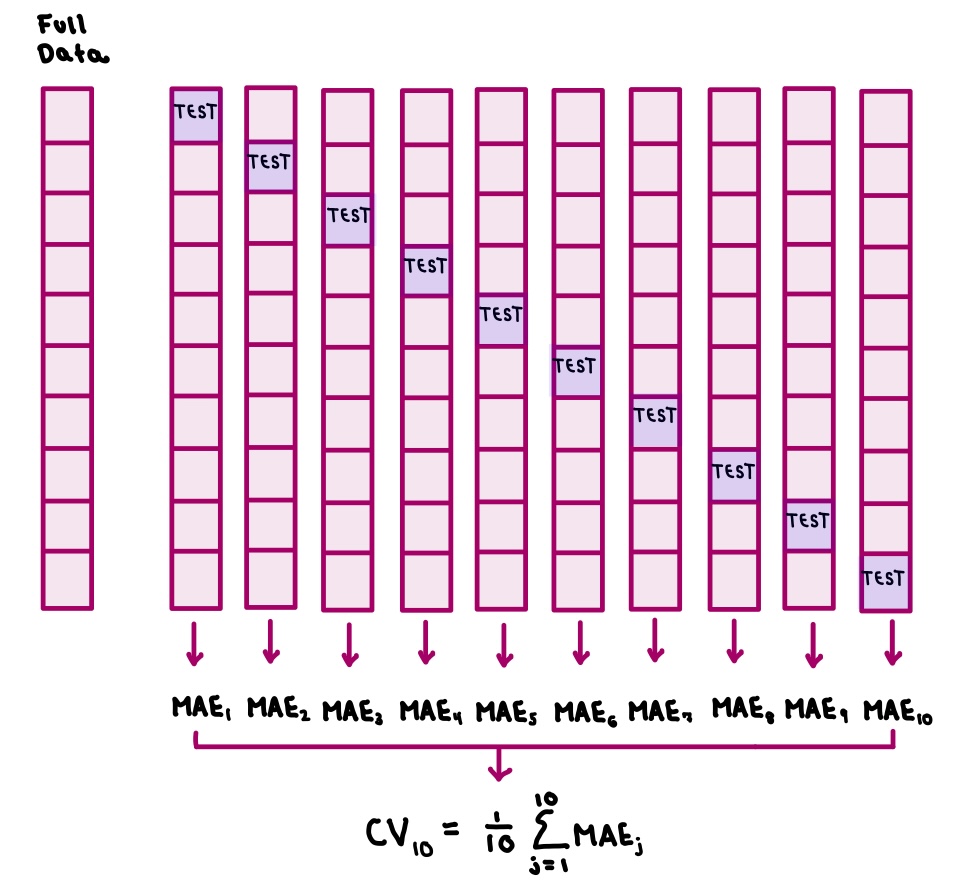 Full
Data
TEST
TEST
TEST
TEST
TEST
TEST
TEST
TEST
TEST
TEST
MAE₁ MAE₂ MAE₃ MAE₄ MAE₅ MAE₆ MAE₇ MAE₈ MAE₉ MAE₁₀
CV₁₀ = 1/10 ∑_{j=1}^{10} MAE_j